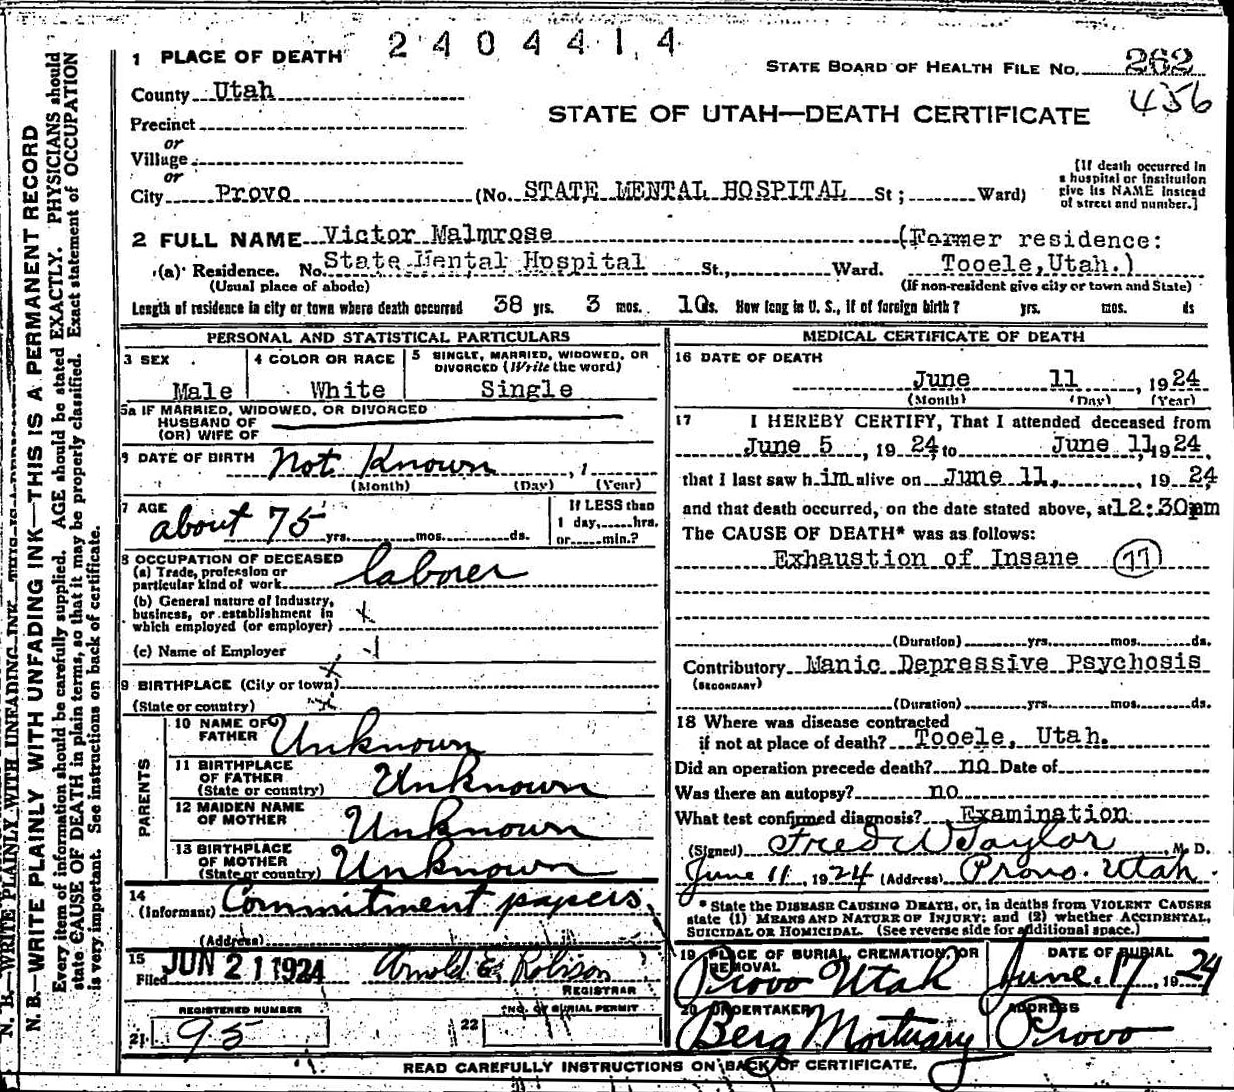 2404414
1 PLACE OF DEATH
STATE BOARD OF HEALTH FILE NO. 262
456
County Utah
STATE OF UTAH—DEATH CERTIFICATE
Precinct
or
Village
or
City Provo (No. STATE MENTAL HOSPITAL St; Ward)
[If death occurred in a hospital or institution give its NAME instead of street and number.]
2 FULL NAME Victor Malmrose (Former residence:
(a) Residence. No. State Mental Hospital St., Ward. Tooele, Utah.)
(Usual place of abode) (If non-resident give city or town and State)
Length of residence in city or town where death occurred 38 yrs. 3 mos. 10 ds. How long in U. S., if of foreign birth? yrs. mos. ds
PERSONAL AND STATISTICAL PARTICULARS
3 SEX Male
4 COLOR OR RACE White
5 SINGLE, MARRIED, WIDOWED, OR DIVORCED (Write the word) Single
5a IF MARRIED, WIDOWED, OR DIVORCED
HUSBAND OF
(OR) WIFE OF
6 DATE OF BIRTH Not Known , 1
(Month) (Day) (Year)
7 AGE about 75 yrs. mos. ds.
If LESS than 1 day, hrs. or min.?
8 OCCUPATION OF DECEASED
(a) Trade, profession or particular kind of work laborer
(b) General nature of Industry, business, or establishment in which employed (or employer) x
(c) Name of Employer
9 BIRTHPLACE (City or town) x
(State or country) x
PARENTS
10 NAME OF FATHER Unknown
11 BIRTHPLACE OF FATHER (State or country) Unknown
12 MAIDEN NAME OF MOTHER Unknown
13 BIRTHPLACE OF MOTHER (State or country) Unknown
14 (Informant) Commitment papers
(Address)
15 Filed JUN 21 1924 Arnold E. Robison
REGISTRAR
REGISTERED NUMBER
21 95
22 NO. OF BURIAL PERMIT
MEDICAL CERTIFICATE OF DEATH
16 DATE OF DEATH
June 11, 1924
(Month) (Day) (Year)
17 I HEREBY CERTIFY, That I attended deceased from
June 5, 1924, to June 11, 1924,
that I last saw him alive on June 11, 1924,
and that death occurred, on the date stated above, at 12:30pm
The CAUSE OF DEATH* was as follows:
Exhaustion of Insane 77
(Duration) yrs. mos. ds.
Contributory Manic Depressive Psychosis
(SECONDARY)
(Duration) yrs. mos. ds.
18 Where was disease contracted
if not at place of death? Tooele, Utah.
Did an operation precede death? no Date of
Was there an autopsy? no
What test confirmed diagnosis? Examination
(Signed) Fred W Taylor M. D.
June 11, 1924 (Address) Provo. Utah.
* State the DISEASE CAUSING DEATH, or, in deaths from VIOLENT CAUSES
state (1) MEANS AND NATURE OF INJURY; and (2) whether ACCIDENTAL,
SUICIDAL OR HOMICIDAL. (See reverse side for additional space.)
19 PLACE OF BURIAL, CREMATION, OR REMOVAL Provo Utah
DATE OF BURIAL June 17, 1924
20 UNDERTAKER Berg Mortuary
ADDRESS Provo
READ CAREFULLY INSTRUCTIONS ON BACK OF CERTIFICATE.
N. B.—WRITE PLAINLY WITH UNFADING INK—THIS IS A PERMANENT RECORD
Every item of information should be carefully supplied. AGE should be stated EXACTLY. PHYSICIANS should
state CAUSE OF DEATH in plain terms, so that it may be properly classified. Exact statement of OCCUPATION
is very important. See instructions on back of certificate.
N. B.—WRITE PLAINLY WITH UNFADING INK